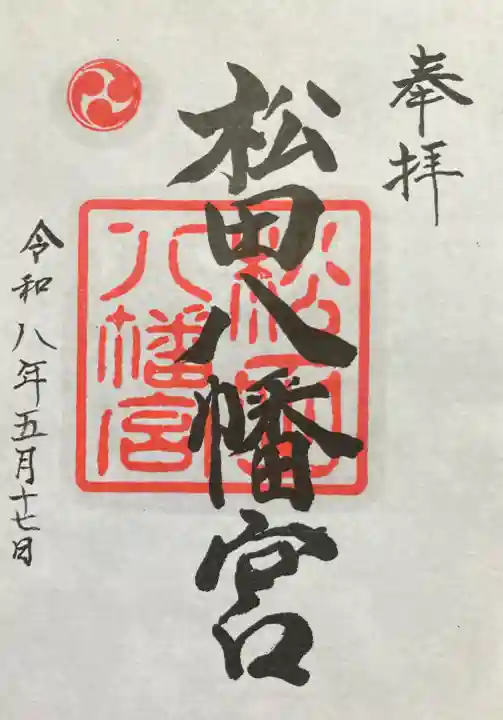 奉拝
松田八幡宮
八幡宮
令和八年五月十七日